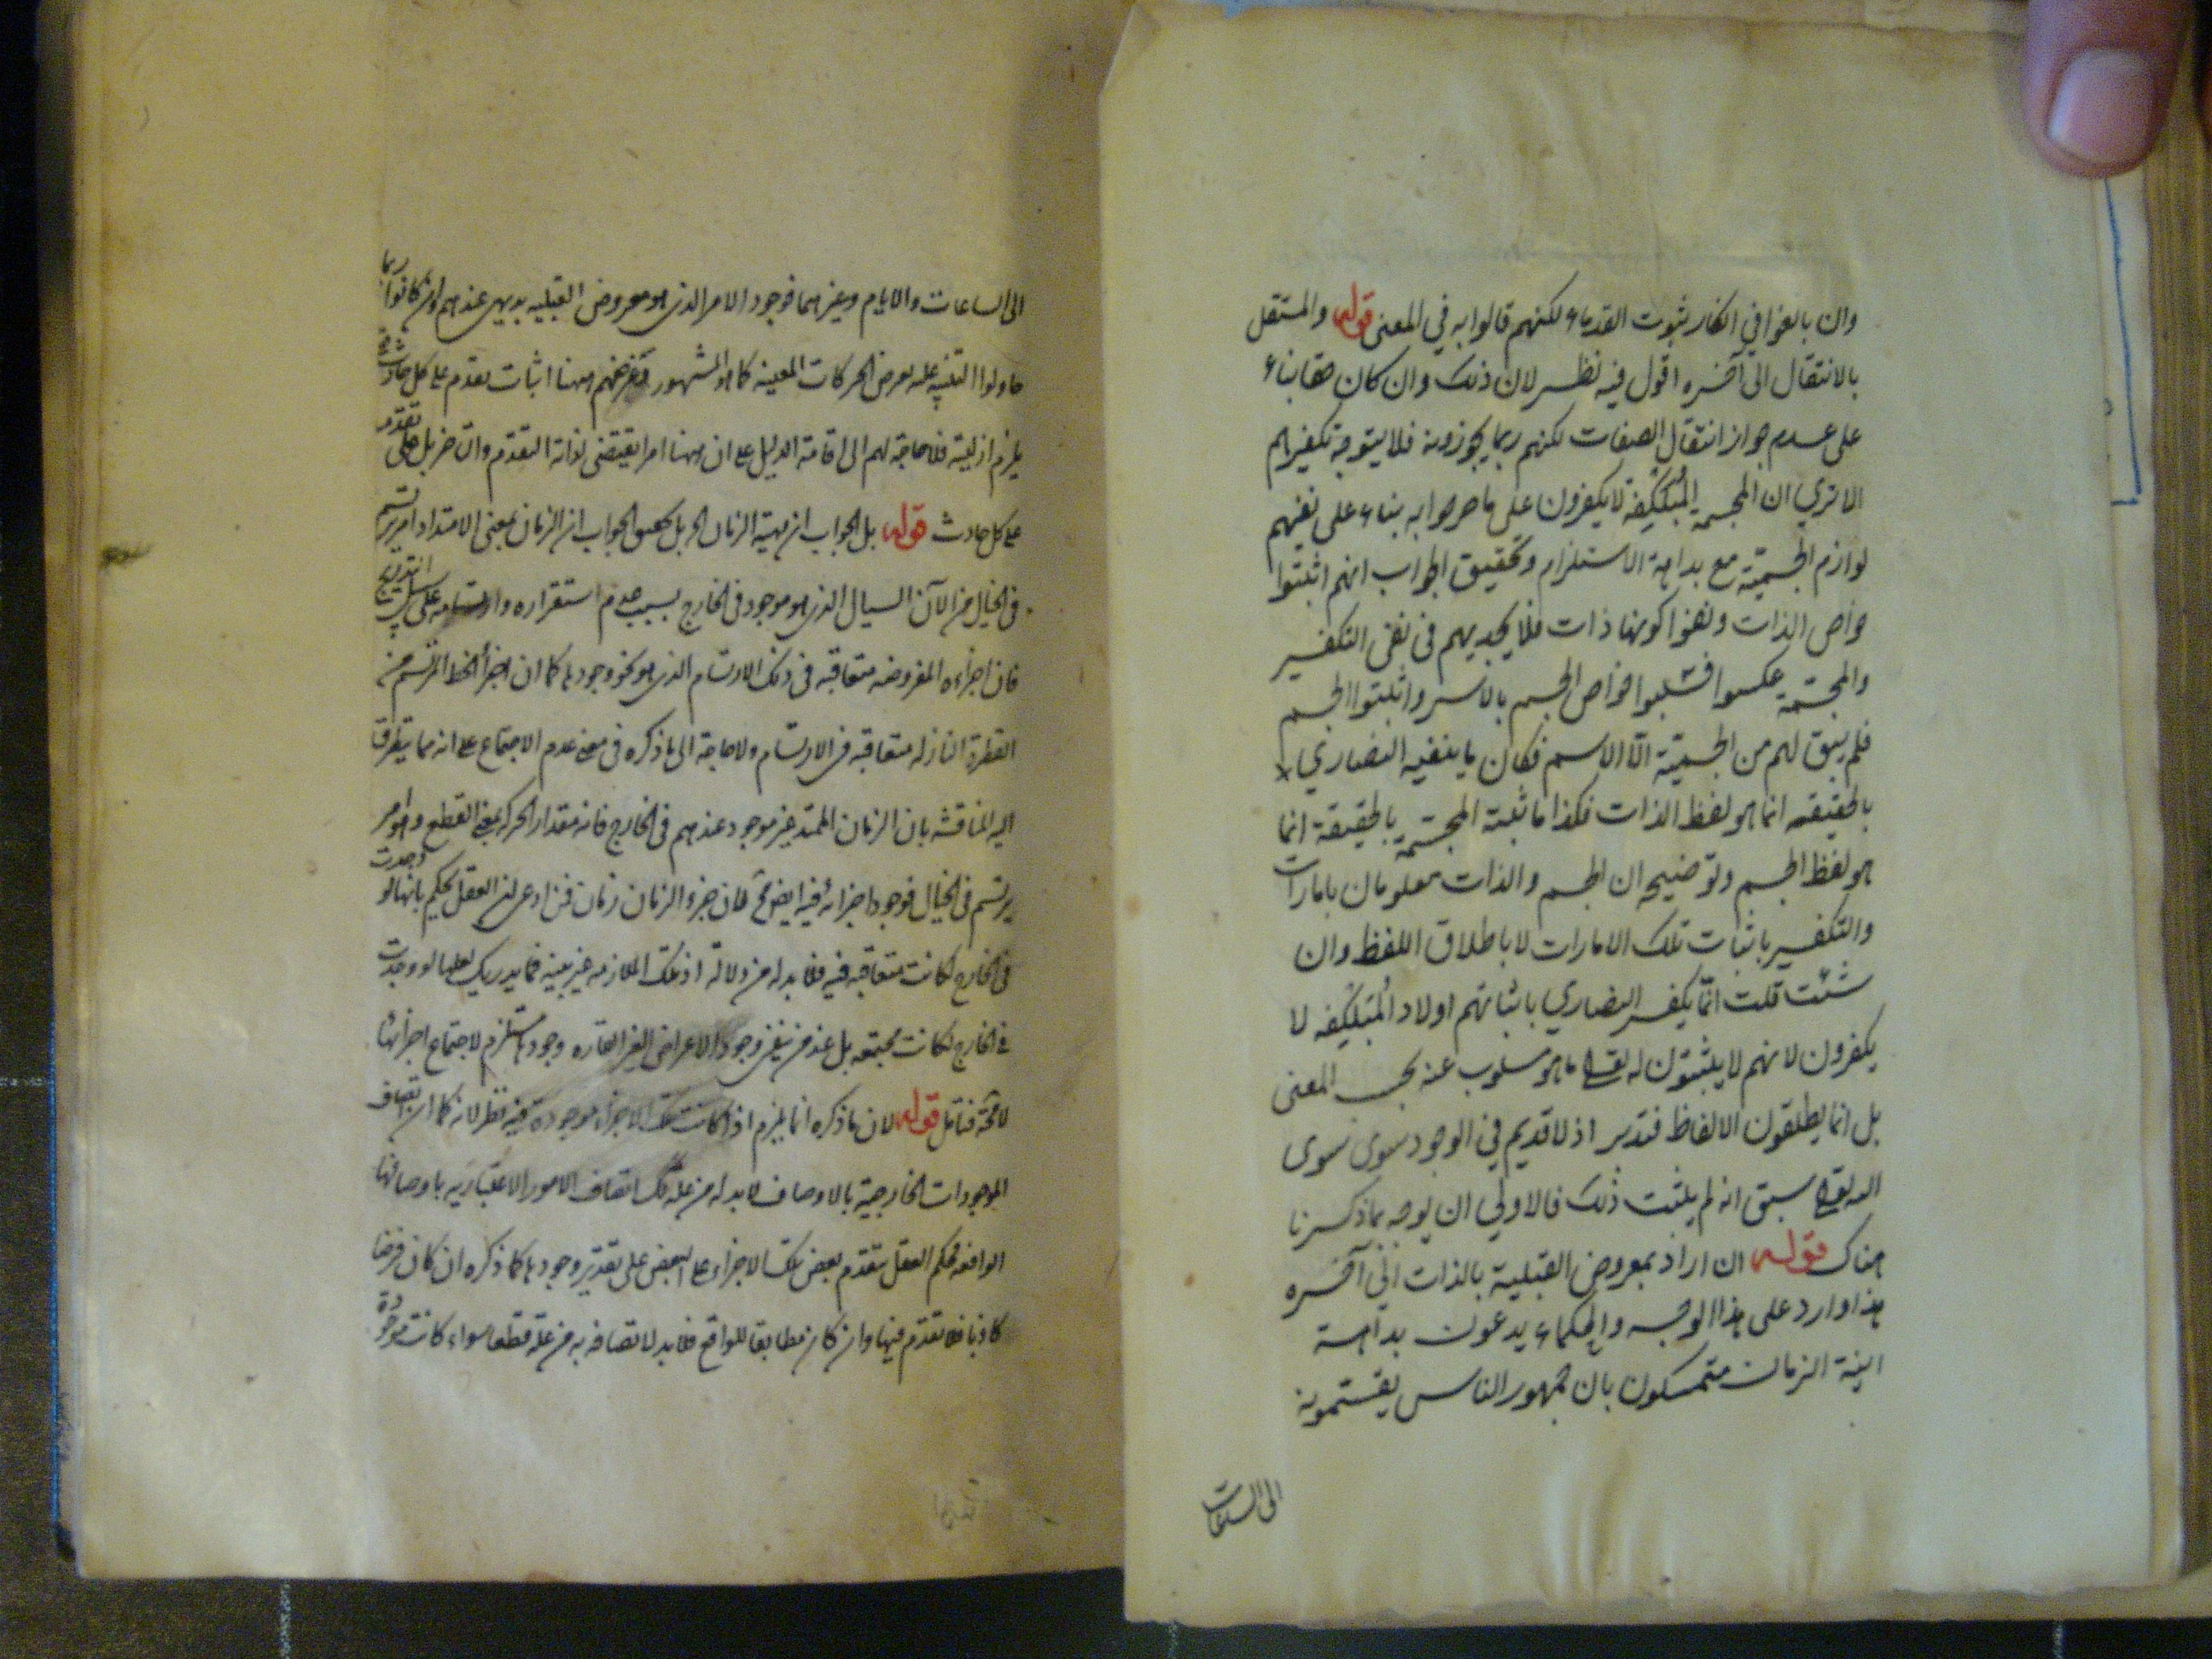 وان بالغوا في انكار ثبوت القدماء لكنهم قالوا به في المعنى قوله والمستقل
بالانتقال الى آخره اقول فيه نظر لان ذلك وان كان حقا بناء
على عدم جواز انتقال الصفات لكنهم ربما يجوزونه فلا يتوجه تكفيرهم
الا تري ان المجسمة المُتبلكِفة لا يكفرون على ما صرحوا به بناء على نفيهم
لوازم الجسمية مع بداهة الاستلزام وتحقيق الجواب انهم اثبتوا
خواص الذات ونفوا كونها ذات فلا يجديهم في نفى التكفير
والمجسمة عكسوا فسلبوا خواص الجسم بالاسر واثبتوا الجسم
فلم يبق لهم من الجسمية الّا الاسم فكان ما ينفيه النصاري
بالحقيقه انما هو لفظ الذات فكذا ما ثبته المجسمة بالحقيقة انما
هو لفظ الجسم وتوضيحه ان الجسم والذات معلومان بامارات
والتكفير باثبات تلك الامارات لا باطلاق اللفظ وان
شئت قلت انّما يكفر النصاري باثباتهم اولاد المُتبلكِفه لا
يكفرون لانهم لا يثبتون له تعالى ما هو مسلوب عنه بحسب المعنى
بل انما يطلقون الالفاظ فتدبر اذ لا قديم في الوجود سوى سوى
الله تعالى سبق انه لم يثبت ذلك فالاولي ان يوجه بما ذكرنا
هناك قوله ان اراد بمعروض القبلية بالذات الي آخره
هذا وارد على هذا الوجه والحكماء يدعون بداهة
اينة الزمان متمسكون بان جمهور الناس يقسمونه
الى الساعات
الى الساعات والايام وغيرهما فوجود الامر الذي هو معروض القبليه بديهى عندهم وان كانوا ربما
حاولوا التنبيه عليه بعرض الحركات المعينه كما هو المشهور وغرضهم ههنا اثبات تقدم على كل حادث
يلزم ازليته فلا حاجة لهم الى اقامة الدليل على ان ههنا امرا يقتضى لذاته التقدم والتاخر بل على تقدم
على كل حادث قوله بل الجواب ان مهية الزمان الخ بل تحقيق الجواب ان الزمان بمعنى الامتداد امر يرتسم
في الخيال من الآن السيال الذي هو موجود في الخارج بسبب عدم استقراره وارتسامه على سبيل التدريج
فان اجزاءه المفروضه متعاقبه في ذلك الارتسام الذي هو نحو وجودها كما ان اجزاء الخط المرتسم من
القطرة النازله متعاقبه في الارتسام ولا حاجة الى ما ذكره في معنى عدم الاجتماع على انه مما يتطرق
اليه المناقشه بان الزمان الممتد غير موجود عندهم في الخارج فانه مقدار الحركة بمعنى القطع وهو امر
يرتسم في الخيال فوجود اجزائه فيه ايضا فان جزء الزمان زمان فمن ادعى ان العقل يحكم بانها لو وجدت
في الخارج لكانت متعاقبه فيه فلا بد له من دلالة اذ تلك الملازمه غير بينه فما يدريك لعلها لو وجدت
في الخارج لكانت مجتمعه بل عند من ينفى وجود الاعراض الغير القاره وجودها مستلزم لاجتماع اجزائها
لا محة فتامل قوله لان ما ذكره انما يلزم اذا كانت تلك الاجزاء موجودة فيه نظر لانه كما ان اتصاف
الموجودات الخارجية بالاوصاف لا بد له من علة كذلك اتصاف الامور الاعتباريه باوصافها
الواقعه فحكم العقل بتقدم بعض تلك الاجزاء على البعض على تقدير وجودها كما ذكره ان كان فرضا
كاذبا فلا تقدم فيها وان كان مطابقا للواقع فلا بد لاتصافه به من علة قطعا سواء كانت موجودة